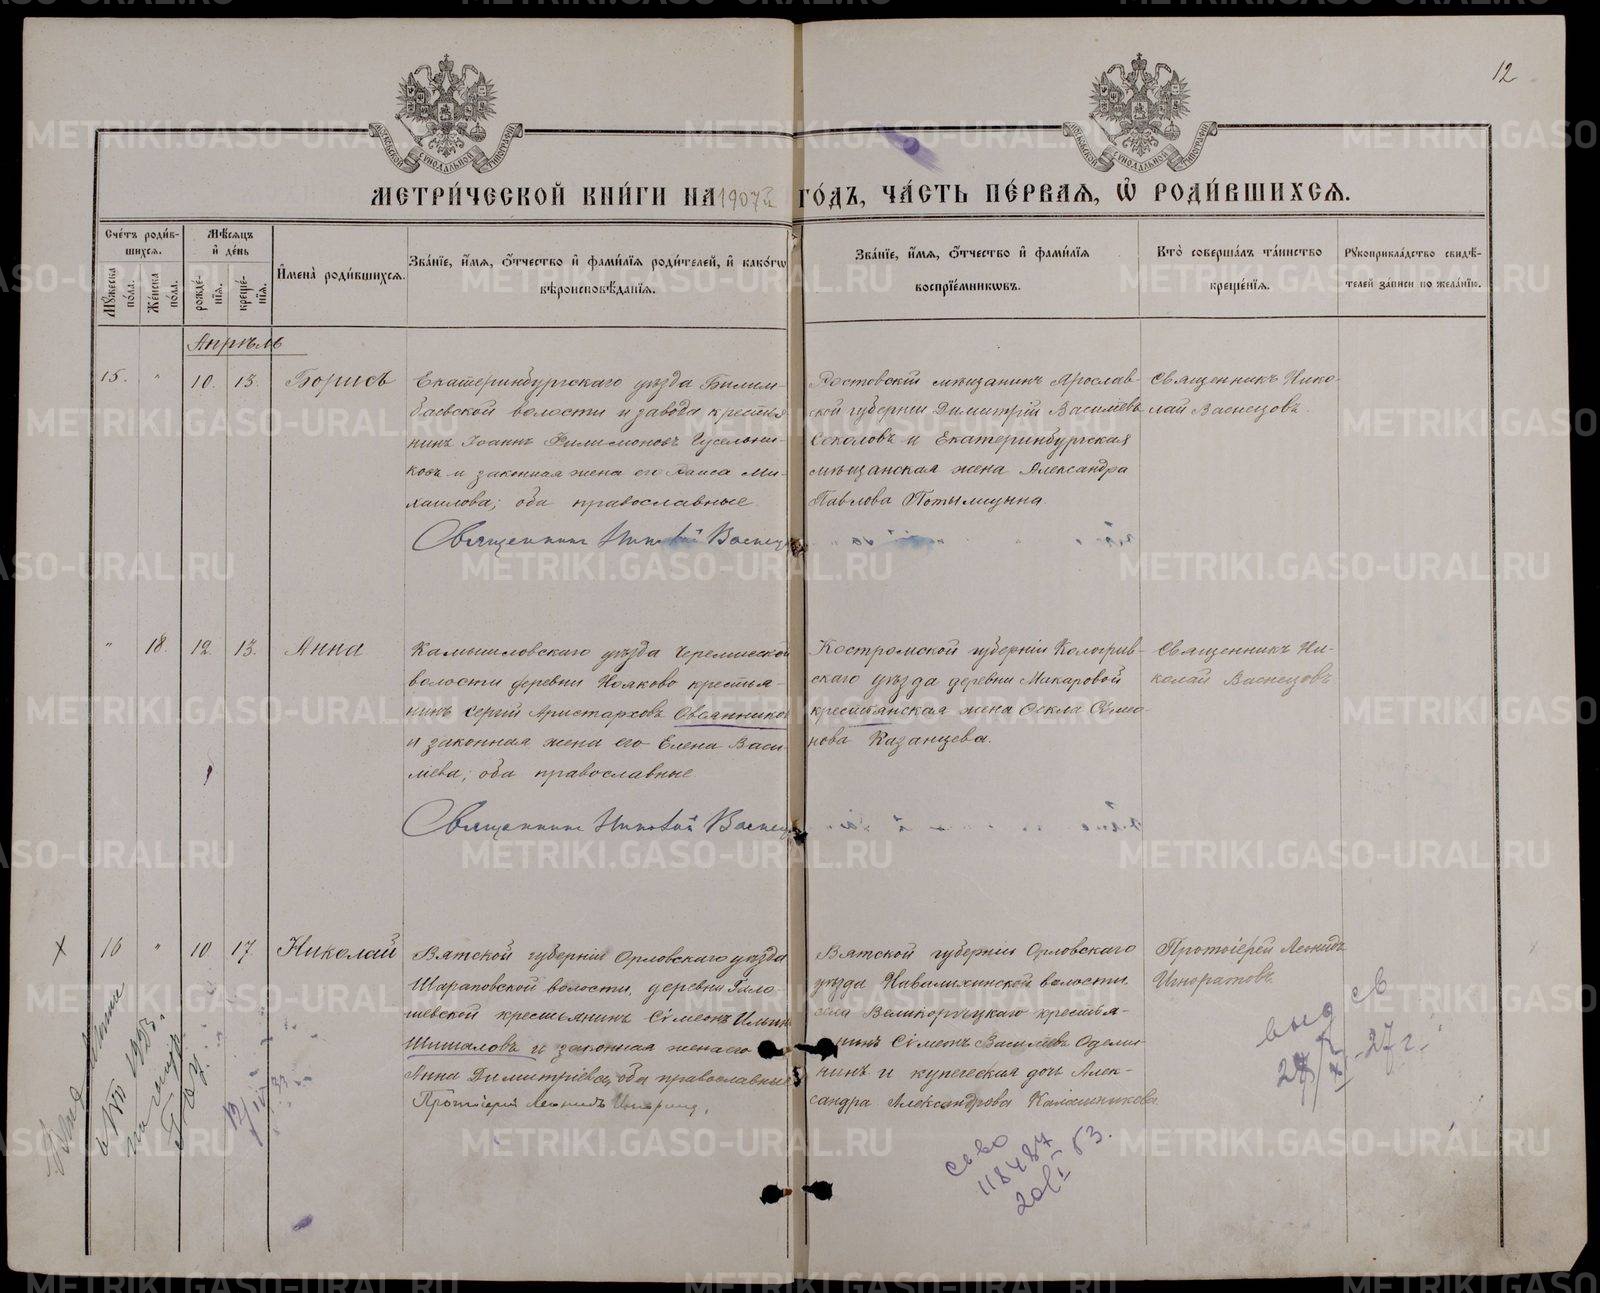 12
МОСКОВСКОЙ СѴНОДАЛЬНОЙ ТИПОГРАФІИ
МОСКОВСКОЙ СѴНОДАЛЬНОЙ ТИПОГРАФІИ
МЕТРИ́ЧЕСКОЙ КНИ́ГИ НА 1907й ГО́ДЪ, ЧА́СТЬ ПЕ́РВАЯ, Ѡ҆ РОДИ́ВШИХСЯ.
Сче́тъ роди́в-
шихся.
Мꙋ́жеска по́ла.
Же́нска по́ла.
Мѣ́сяцъ
и҆ де́нь
рожде́-
нїя.
креще́-
нїя.
И҆мена̀ роди́вшихся.
Зва́нїе, и҆́мя, ѻ҆́тчество и҆ фами́лїя роди́телей, и҆ како́гѡ
вѣроисповѣ́данїя.
Зва́нїе, и҆́мя, ѻ҆́тчество и҆ фами́лїя
воспрїе́мникѡвъ.
Кто̀ соверша́лъ та́инство
креще́нїя.
Рꙋкоприкла́дство свидѣ́-
телей за́писи по жела́нїю.
Апрѣль
15. " 10. 13. Борисъ
Екатеринбургскаго уѣзда Билим-
баевской волости и завода крестья
нинъ Іоаннъ Филимоновъ Гусельни-
ковъ и законная жена его Раиса Ми-
хаилова; оба православные
Священникъ Николай Васнецовъ
Ростовскій мѣщанинъ Ярослав-
ской губерніи Димитрій Васильевъ
Соколовъ и Екатеринбургская
мѣщанская жена Александра
Павлова Потылицына.
Священникъ Нико-
лай Васнецовъ.
" 18. 12. 13. Анна
Камышловскаго уѣзда Черемисской
волости деревни
крестья-
нинъ Сергій Аристарховъ Овсянниковъ
и законная жена его Елена Васи-
льева; оба православные
Священникъ Николай Васнецовъ
Костромской губерніи Кологрив-
скаго уѣзда деревни Макаровой
крестьянская жена Ѳекла
нова Казанцева.
Священникъ Ни-
колай Васнецовъ
16 " 10 17 Николай
Вятской губерніи Орловскаго уѣзда
Шараповской волости, деревни
шевской крестьянинъ Сімеонъ Ильинъ
Шишаловъ и законная жена его
Анна Димитріева, оба православные
Протоіерей Леонидъ Игноратовъ.
Вятской губерніи Орловскаго
уѣзда Навалихинской волости
села Великорѣцкаго крестья-
нинъ Сімеонъ Васильевъ
нинъ и купеческая дочь Алек-
сандра Александрова Калашникова
Протоіерей Леонидъ
Игноратовъ.
св
выд
27 г.
118487
20/I 53.
METRIKI.GASO-URAL.RU